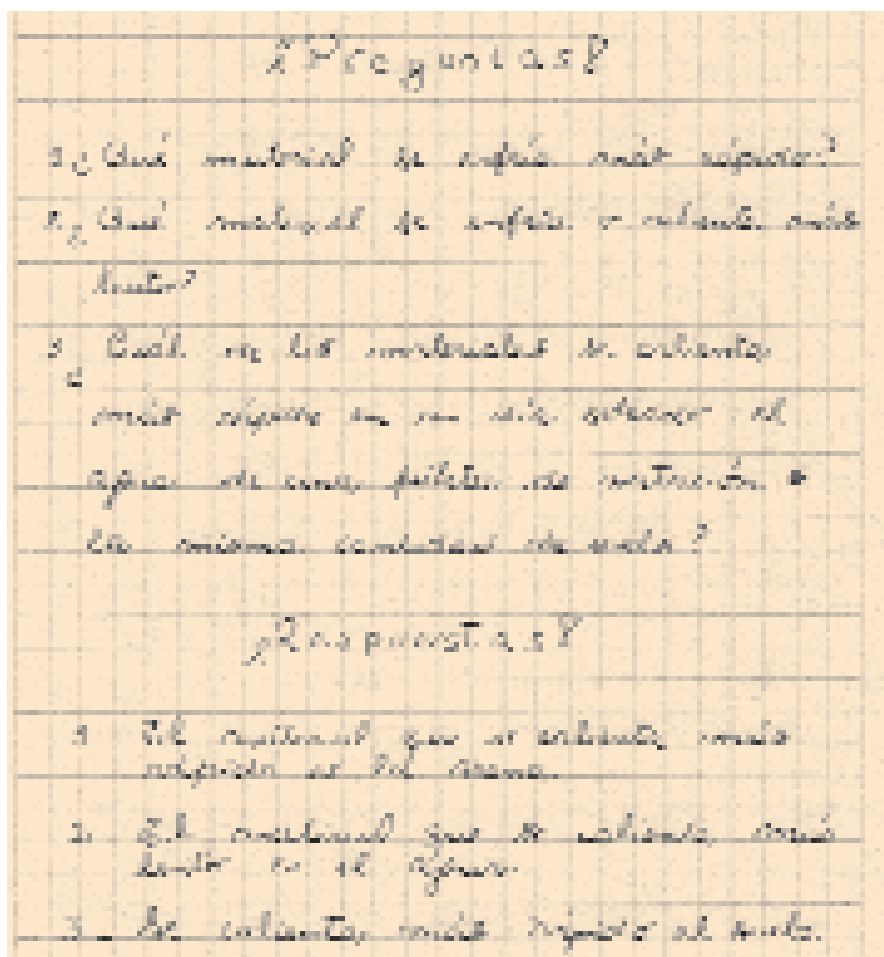 ¿Preguntas?
1. ¿Qué material se enfría más rápido?
2. ¿Qué material se enfría o calienta más
lento?
3. ¿Cuál de los materiales se calienta
más rápido en un día de el
agua de una pileta de natación o
la misma cantidad de suelo?
¿Respuestas?
1. El material que se calienta más
rápido es la arena.
2. El material que se calienta más
lento es el agua.
3. Se calienta más rápido el suelo.